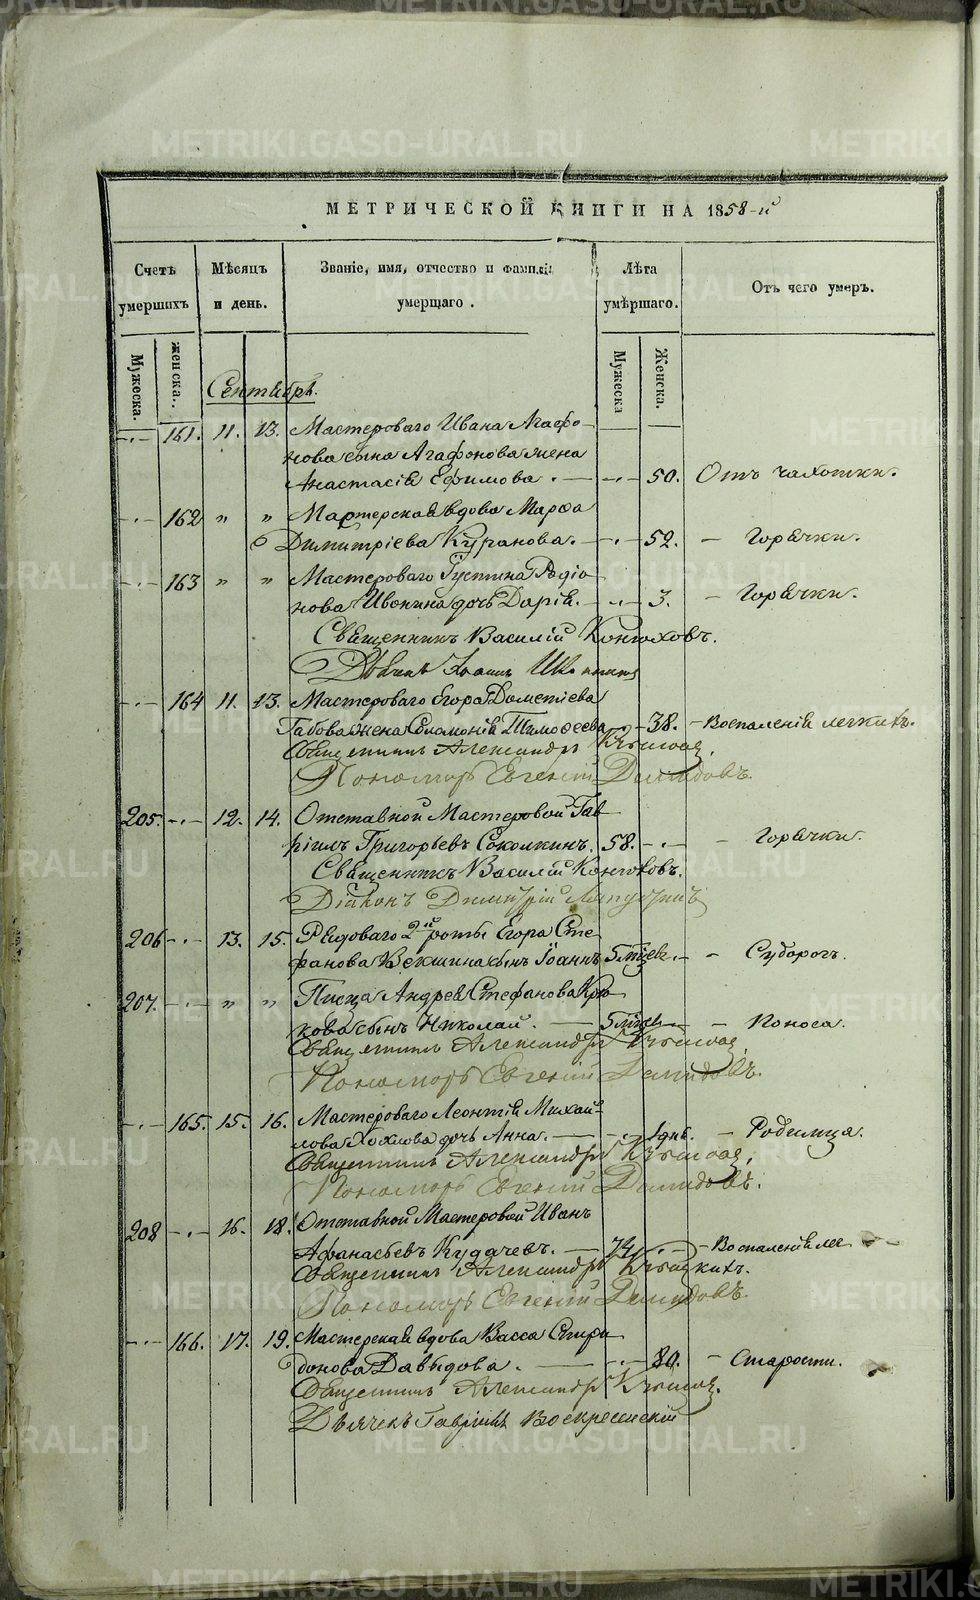 МЕТРИЧЕСКОЙ КНИГИ НА 1858-й
Счетъ умершихъ
Мѣсяцъ и день.
Званіе, имя, отчество и фамилія умершаго.
Лѣта умершаго.
Отъ чего умеръ.
Мужеска.
женска.
Мужеска
Женска.
Сентябрь.
-·- 161. 11. 13. Мастероваго Ивана Агафо-
нова сына Агафонова жена
Анастасія Ефимова. -·- 50. Отъ чахотки.
-·- 162 " " Мастерская вдова Марфа
Димитріева Куранова. -·- 52. - Горячки.
-·- 163 " " Мастероваго Густина Родіо-
нова Ивонина дочь Дарія. -·- 3. - Горячки.
Священникъ Василій Конюховъ.
Дьячекъ Іоаннъ
-·- 164 11. 13. Мастероваго Егора Дометіева
Габова жена Соломонія Тимофеева 38. - Воспаленія легкихъ.
Священникъ Александръ
Пономарь Евгеній Демидовъ.
205. -·- 12. 14. Отставной Мастеровой Гав-
ріилъ Григорьевъ Соколкинъ. 58. -·- - Горячки.
Священникъ Василій Конюховъ.
Діаконъ Димитрій
206 -·- 13. 15. Рядоваго 2й роты Егора Сте-
фанова Векшина сынъ Іоаннъ 5 мѣсяц. - - Судорогъ.
207. -·- " " Писца Андрея Стефанова Крю-
кова сынъ Николай. 5 мѣсяц - Поноса.
Священникъ Александръ
Пономарь Евгеній Демидовъ.
-·- 165. 15. 16. Мастероваго Леонтія Михай-
лова Хохлова дочь Анна. - 1 дня. - Родимца.
Священникъ Александръ
Пономарь Евгеній Демидовъ.
208 -·- 16. 18. Отставной Мастеровой Иванъ
Афанасьевъ Кудачевъ. 74. -·- - Воспаленія лег-
кихъ.
Священникъ Александръ
Пономарь Евгеній Демидовъ.
-·- 166. 17. 19. Мастерская вдова Васса Спири-
донова Давыдова. -·- 80. - Старости.
Священникъ Александръ
Дьячекъ Гавріилъ Воскресенскій
METRIKI.GASO-URAL.RU